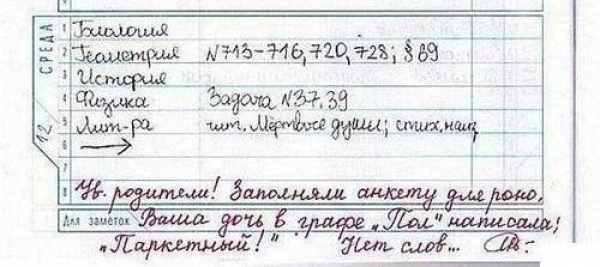 СРЕДА
12
1 Биология
2 Геометрия N713-716, 720, 728; § 69
3 История
4 Физика Задача N37.39
5 Лит-ра чит. Мёртвые души; стих. наиз
6
7
8 Ув. родители! Заполняли анкету для роно.
Для заметок Ваша дочь в графе „Пол" написала:
„Паркетный!" Нет слов...